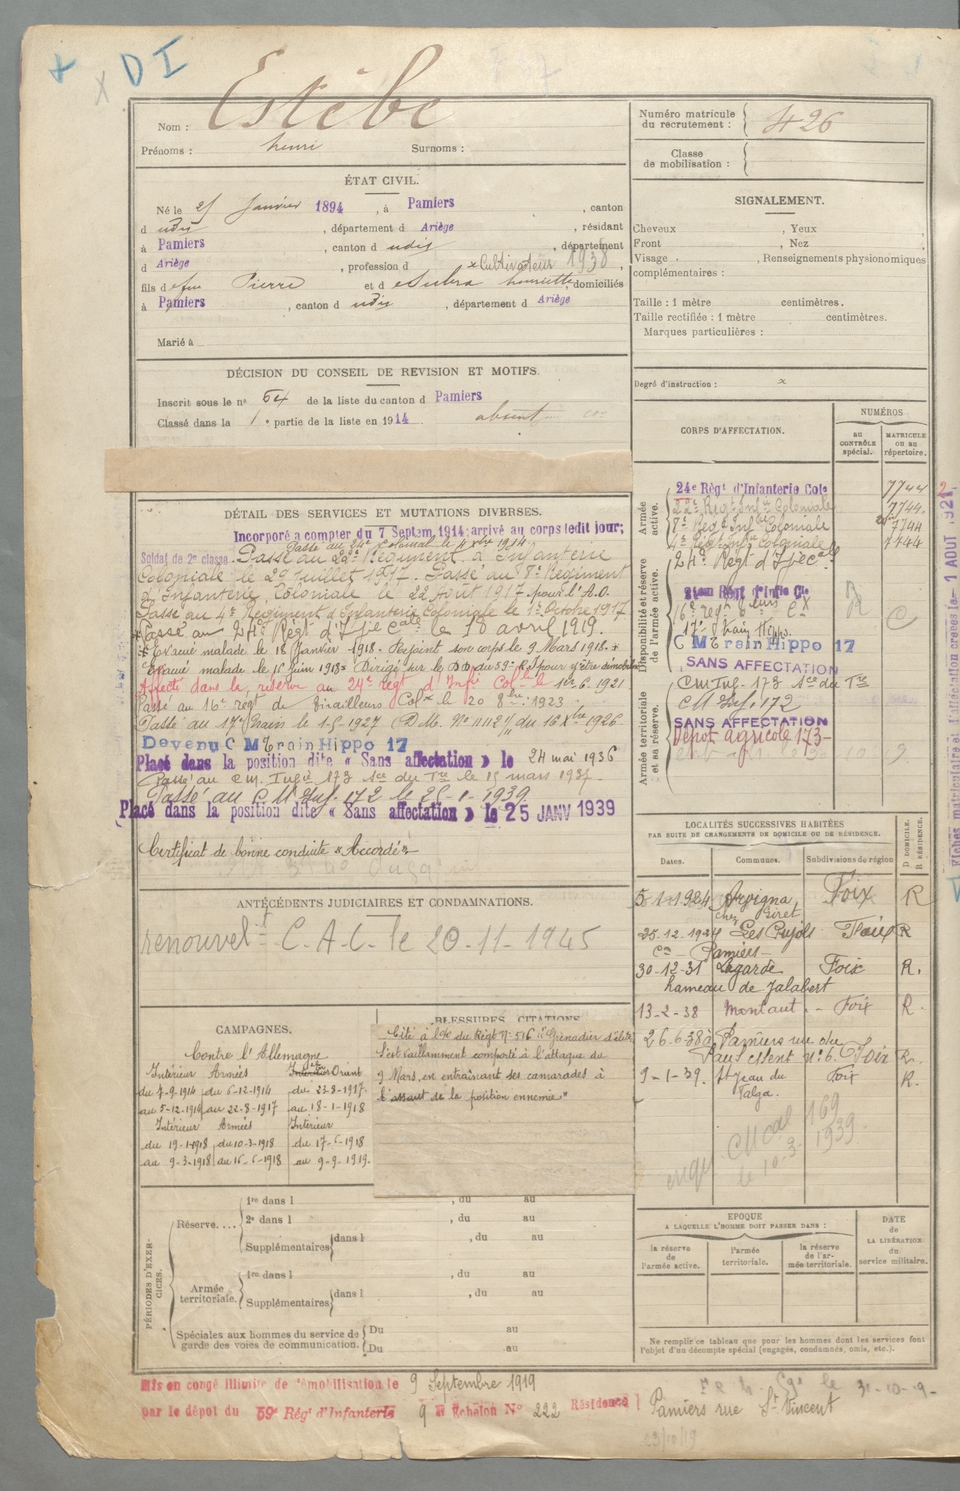 DI
Nom : Estèbe
Prénoms : henri Surnoms :
Numéro matricule du recrutement : 426
Classe de mobilisation :
ÉTAT CIVIL.
Né le 25 Janvier 1894, à Pamiers, canton
d udis, département d Ariège, résidant
à Pamiers, canton d udis, département
d Ariège, profession d x Cultivateur 1938,
fils de feu Pierre et de Henriette, domiciliés
à Pamiers, canton d udis, département d Ariège
Marié à
SIGNALEMENT.
Cheveux , Yeux ,
Front , Nez ,
Visage . , Renseignements physionomiques
complémentaires :
Taille : 1 mètre centimètres.
Taille rectifiée : 1 mètre centimètres.
Marques particulières :
DÉCISION DU CONSEIL DE REVISION ET MOTIFS.
Inscrit sous le n° 64 de la liste du canton d Pamiers
Classé dans la 1e partie de la liste en 1914 absent
Degré d'instruction : x
DÉTAIL DES SERVICES ET MUTATIONS DIVERSES.
Incorporé à compter du 7 Septem. 1914 arrivé au corps ledit jour;
Passé au 24e Colonial le
Soldat de 2e classe. Passé au 22e Régiment d'Infanterie
Coloniale le 29 Juillet 1917. Passé au 8e Régiment
d'Infanterie Coloniale le 22 Août 1917 pour l'A.O.
Passé au 4e Régiment d'Infanterie Coloniale le 1er Octobre 1917
Passé au 24e Regt d'Ifie Cale le 18 avril 1919.
Evacué malade le 18 Janvier 1918. Rejoint son corps le 9 Mars 1918. +
Evacué malade le 16 Juin 1918 = Dirigé sur le DD du 59e R.I pour y être démobilisé
Affecté dans la réserve au 24e regt d'Infie Colle le 1er 6. 1921
Passé au 16e regt de Tirailleurs Colx le 20 8bre 1923
Passé au 17e Train le 1-5-1927 (D.M. No 11112/ du 16 Xbre 1926
Devenu C M Train Hippo 17
Placé dans la position dite « Sans affectation » le 24 mai 1936
Passé au C.M. Infie 173 le 15 mars 1937-
Passé au C M Inf. 172 le 25-1-1939
Placé dans la position dite « Sans affectation » le 25 JANV 1939
Certificat de bonne conduite « Accordé »
CORPS D'AFFECTATION.
NUMÉROS
AU CONTRÔLE spécial.
MATRICULE OU AU répertoire.
Armée active.
24e Régt d'Infanterie Cole 7744
22e Regt Infie Coloniale 7744
8e Reg Infie Coloniale 7744
4e Reg Infie Coloniale 7744
24e Regt d'Ifie Cale
Disponibilité et réserve de l'armée active.
16e regt tleurs Cx
17e Train Hippo.
C M Train Hippo 17
SANS AFFECTATION
Armée territoriale et sa réserve.
C M Inf. 173
C M Inf. 172
SANS AFFECTATION
Dépôt agricole 173-
ANTÉCÉDENTS JUDICIAIRES ET CONDAMNATIONS.
renouvelt C.A.C. le 20-11-1945
LOCALITÉS SUCCESSIVES HABITÉES
PAR SUITE DE CHANGEMENTS DE DOMICILE OU DE RÉSIDENCE.
Dates. Communes. Subdivisions de région D DOMICILE. R RÉSIDENCE.
5-1-1924 Arvigna, Foix R
chez Giret
25-12-1924 Les Pujols Foix R
Con Pamiers-
30-12-31 Lagarde Foix R.
hameau de Jalabert
13-2-38 Montaut. - Foix R
26-6-38 à Pamiers rue du Foix R.
n° 6.
9-1-39. St Jean du Foix R.
Falga.
CM 169
le 10-3-1939
CAMPAGNES.
Contre l'Allemagne
Intérieur Armées Orient
du 7-9-1914 du 6-12-1914 du 23-8-1917
au 5-12-1914 au 22-8-1917 au 18-1-1918
Intérieur Armées Intérieur
du 19-1-1918 du 10-3-1918 du 17-6-1918
au 9-3-1918 au 16-6-1918 au 9-9-1919.
BLESSURES, CITATIONS
Cité à l'O. du Régt N° 516 "Grenadier d'élite
S'est vaillamment comporté à l'attaque du
9 Mars, en entraînant ses camarades à
l'assaut de la position ennemie"
PÉRIODES D'EXERCICES.
Réserve....
1re dans l , du au
2e dans l , du au
Supplémentaires dans l , du au
Armée territoriale.
1re dans l , du au
Supplémentaires dans l , du au
Spéciales aux hommes du service de garde des voies de communication.
Du au
Du au
EPOQUE
A LAQUELLE L'HOMME DOIT PASSER DANS :
la réserve de l'armée active.
l'armée territoriale.
la réserve de l'armée territoriale.
DATE de LA LIBÉRATION du service militaire.
Ne remplir ce tableau que pour les hommes dont les services font
l'objet d'un décompte spécial (engagés, condamnés, omis, etc.).
Mis en congé illimité de démobilisation le 9 Septembre 1919
par le dépôt du 59e Régt d'Infanterie 9e Echelon N° 222 Résidence Pamiers rue St Vincent
le 31-10-19-